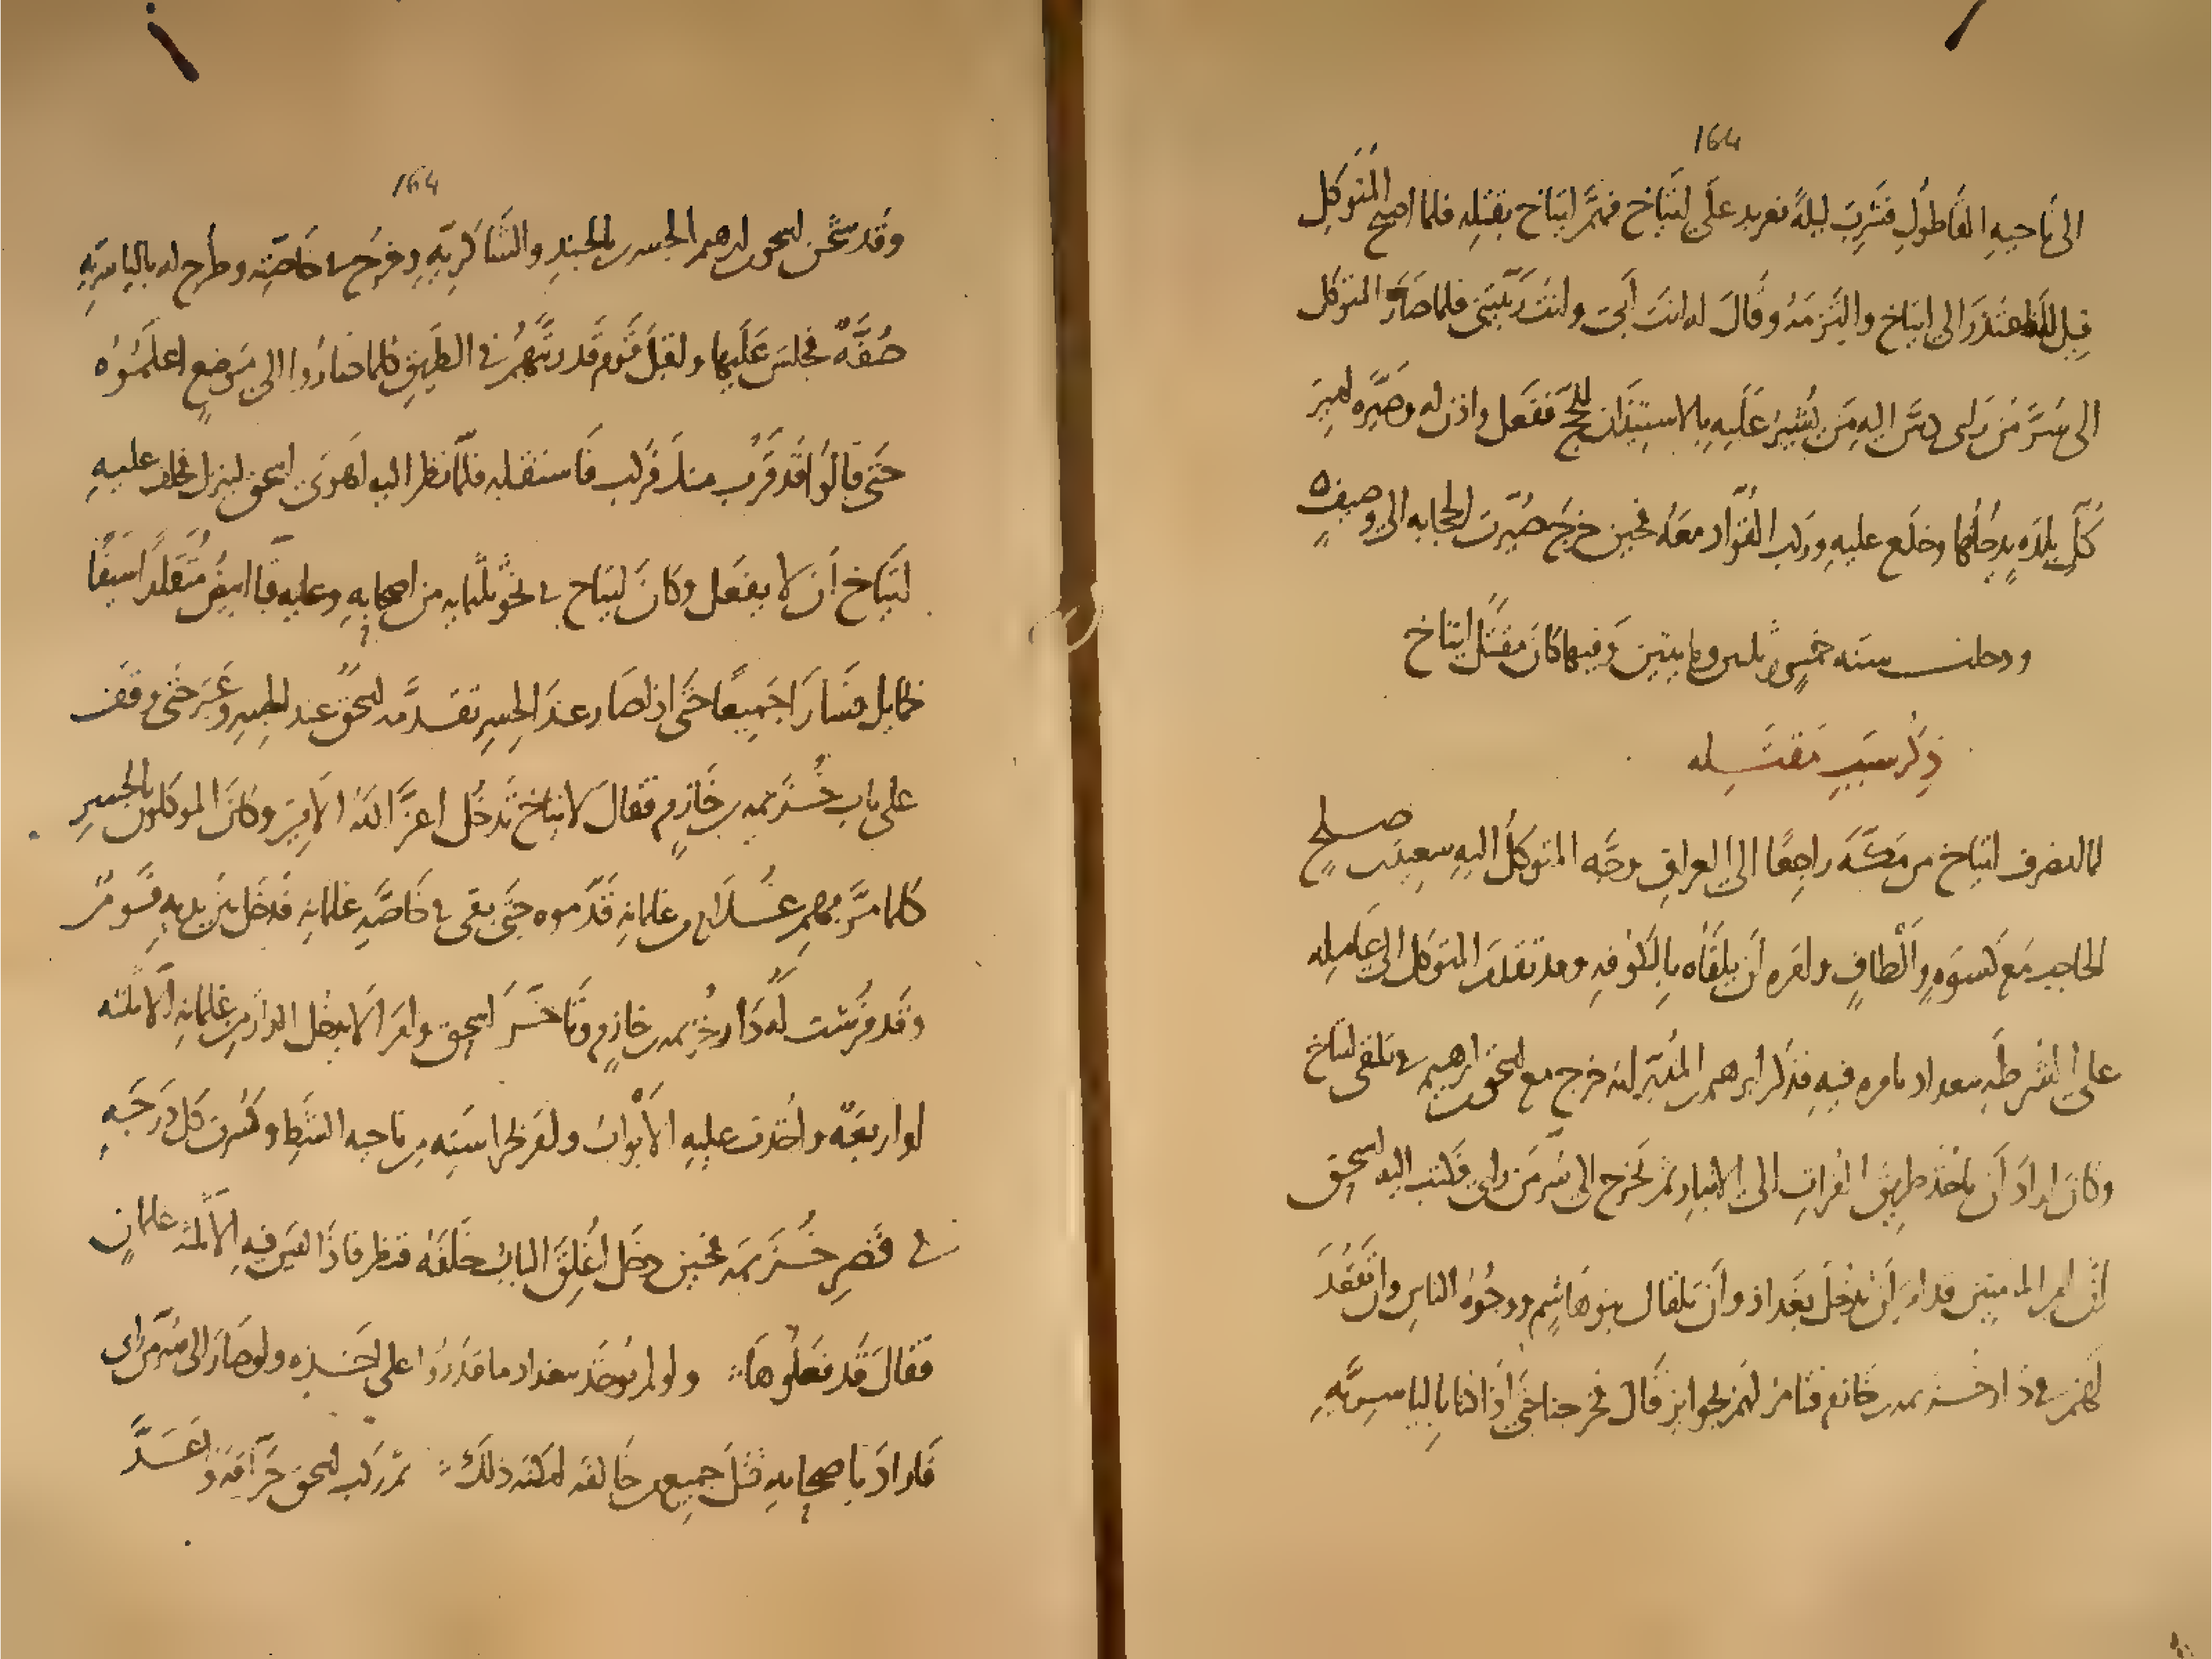 164
الى ناحيه القاطول فشرب ليلة فعربد على ايتاخ فهمّ ايتاخ بقتله فلما اصبح المتوكل
قيل له فاعتذر الى ايتاخ والتزمه وقال له انت ابى وانت ربيتنى فلما صار المتوكل
الى سُرَّ مَن رأى دسّ اليه من يشير عليه بالاستيذان للحج ففعل واذن له وصيّره امير
كلّ بلده يدخلها وخلع عليه وركب القوّاد معه فحين خرج صُيّرت الحجابه الى وصيف
ودخلت سنه خمس وثلثين ومايتين وفيها كان مقتل ايتاخ
ذكر سبب مقتله
لما انصرف ايتاخ من مكّه راجعًا الى العراق وجّه المتوكل اليه سعيد بن صلح
الحاجب مع كسوه والطاف وامره ان يلقاه بالكوفه وقد تقدم المتوكل الى عامله
على الشرطه ببغداد بامره فيه فذكر ابرهيم بن المدبر انه خرج مع اسحق بن ابرهيم فى تلقى ايتاخ
وكان اراد ان ياخذ طريق الفرات الى الانبار ثم يخرج الى سُرّ مَن راى فكتب اليه اسحق
انّ امير المومنين قد امر ان تدخل بغداذ وان يلقاك بنو هاشم ووجوه الناس وان تقعد
لهم فى دار خزيمه بن خازم فتامر لهم بجوايز قال فخرجنا حتى اذا كنا بالياسريه
164
وقد شحن اسحق بن ابرهيم الجسر بالجند والشاكريه وخرج فى خاصّته وطرح له بالياسريه
صُفّه فجلس عليها واقبل قوم قد رتبهم فى الطريق كلما صاروا الى موضع اعلموه
حتى قالوا قد قرب منك فركب فاستقبله فلمّا نظر اليه اهوى اسحق لينزل فحلف عليه
ايتاخ أن لا يفعل وكان ايتاخ فى نحو ثلثمايه من اصحابه وعليه قبا ابيض متقلدًا سيفًا
بحمايل فسارا جميعًا حتى اذا صار عند الجسر تقدّمه اسحق عند الجسر وعبر حتى وقف
على باب خزيمه بن خازم فقال لايتاخ تدخل اعزّ الله الامير وكان الموكلون بالجسر
كلما مرّ بهم غلام من غلمانه قدّموه حتى بقى فى خاصّه غلمانه فدخل بين يديه قوم
وقد فرشت له دار خزيمه بن خازم وتاخّر اسحق وامر الا يدخل الدار من غلمانه الا ثلثه
او اربعه واخذت عليه الأبواب وامر بحراسته من ناحيه الشط وكسرت كل درجه
فى قصر خزيمه فحين دخل اُغلق الباب خلفه فنظر فاذا ليس فيه الا ثلثه غلمان
فقال قد فعلوها ؞ ولو لم يوخذ ببغداد ما قدروا على اخذه ولو صار الى سُرّ من راى
فاراد باصحابه قتل جميع من خالفه لامكنه ذلك ؞ ثم ركب اسحق حرّاقه واعدّ